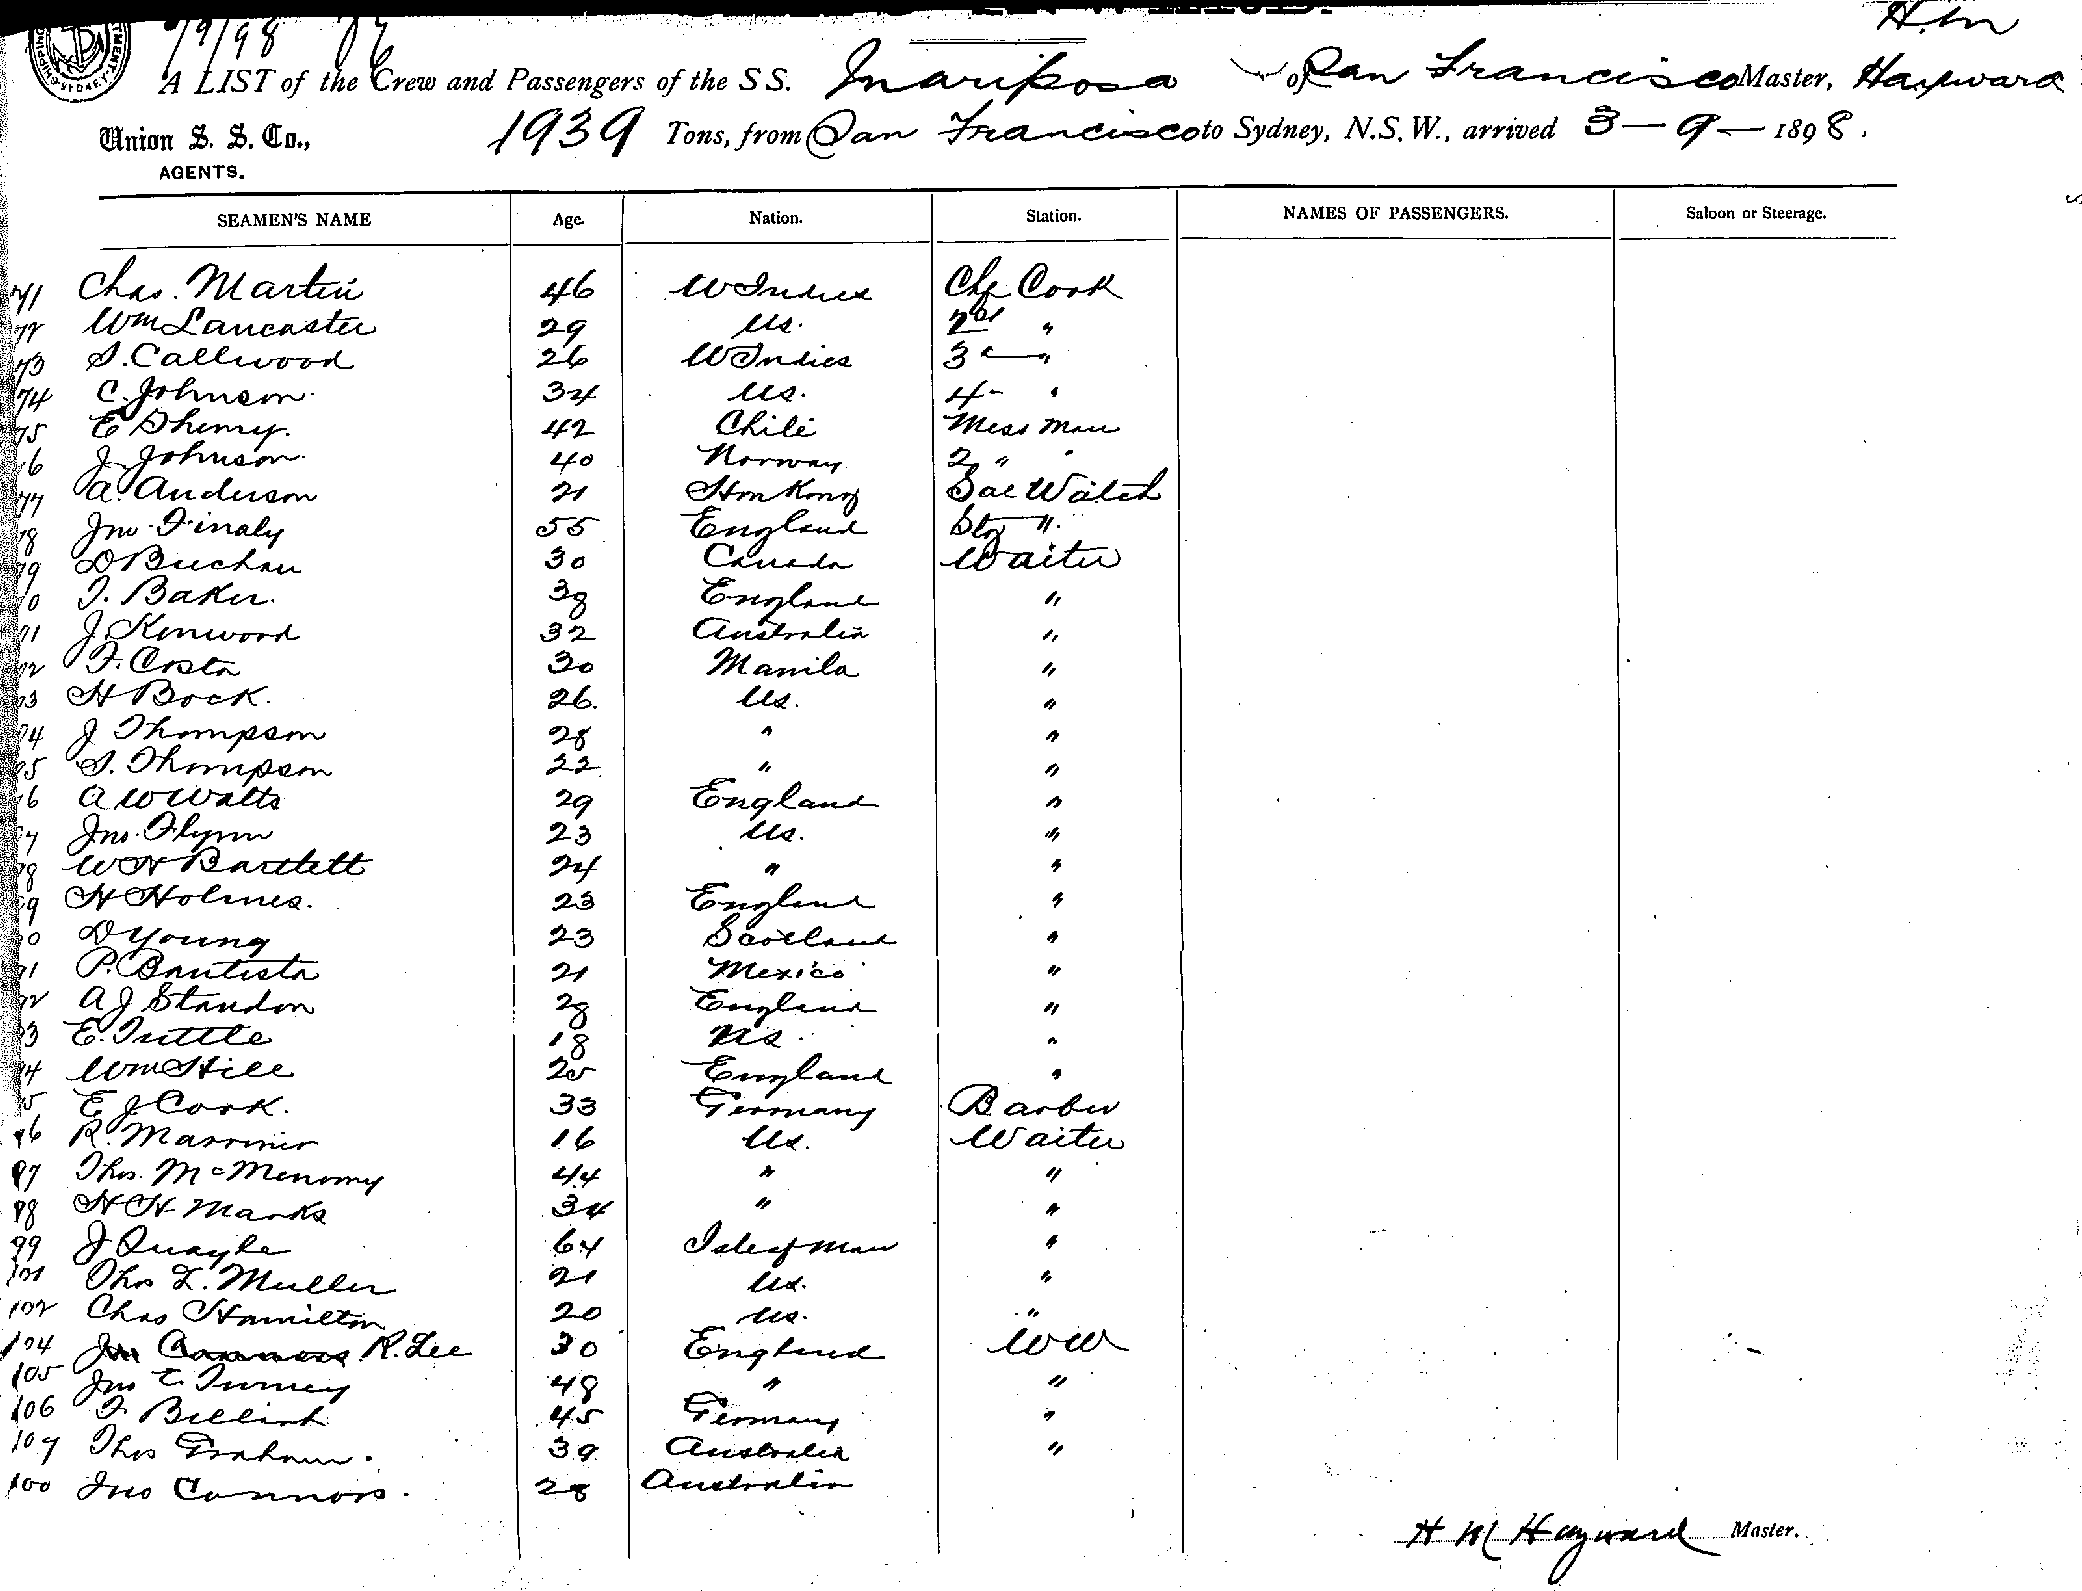 7/9/98
H. M
A LIST of the Crew and Passengers of the S S. Mariposa of San Francisco Master, Hayward
Union S. S. Co., 1939 Tons, from San Francisco to Sydney, N.S.W., arrived 3 — 9 — 1898.
AGENTS.
SEAMEN'S NAME Age. Nation. Station. NAMES OF PASSENGERS. Saloon or Steerage.
71 Chas. Martin 46 W Indies Chf Cook
72 Wm Lancaster 29 Us. 2nd "
73 S. Callwood 26 W Indies 3 "
74 C. Johnson 34 Us. 4 "
75 E Dhemy. 42 Chili Mess Man
76 J. Johnson 40 Norway 2 " "
77 A. Anderson 21 Hon Kong Sal Watch
78 Jno. Finaly 55 England Stg "
79 D Buchan 30 Canada Waiter
80 T. Baker. 38 England "
81 J. Kenwood 32 Australia "
82 F. Costa 30 Manila "
83 H Bock. 26. Us. "
84 J Thompson 28 " "
85 S. Thompson 22 " "
86 A W Watts 29 England "
87 Jno. Flynn 23 Us. "
88 W H Bartlett 24 " "
89 H Holmes. 23 England "
90 D Young 23 Scotland "
91 P. Bautista 21 Mexico "
92 A J Standon 28 England "
93 E. Tuttle 18 Us. "
94 Wm Hill 25 England "
95 E J Cook. 33 Germany Barber
96 R. Marriner 16 Us. Waiter
97 Thos. McMenomy 44 " "
98 H H Marks 34 " "
99 J Quayle 64 Isle of Man "
101 Thos L. Muller 21 Us. "
102 Chas Hamilton 20 Us. "
104 Jno Connors R. Lee 30 England WW
105 Jno E Turney 48 " "
106 F. 45 Germany "
107 Thos Graham. 39 Australia "
100 Jno Connors. 28 Australia
H M Hayward Master.